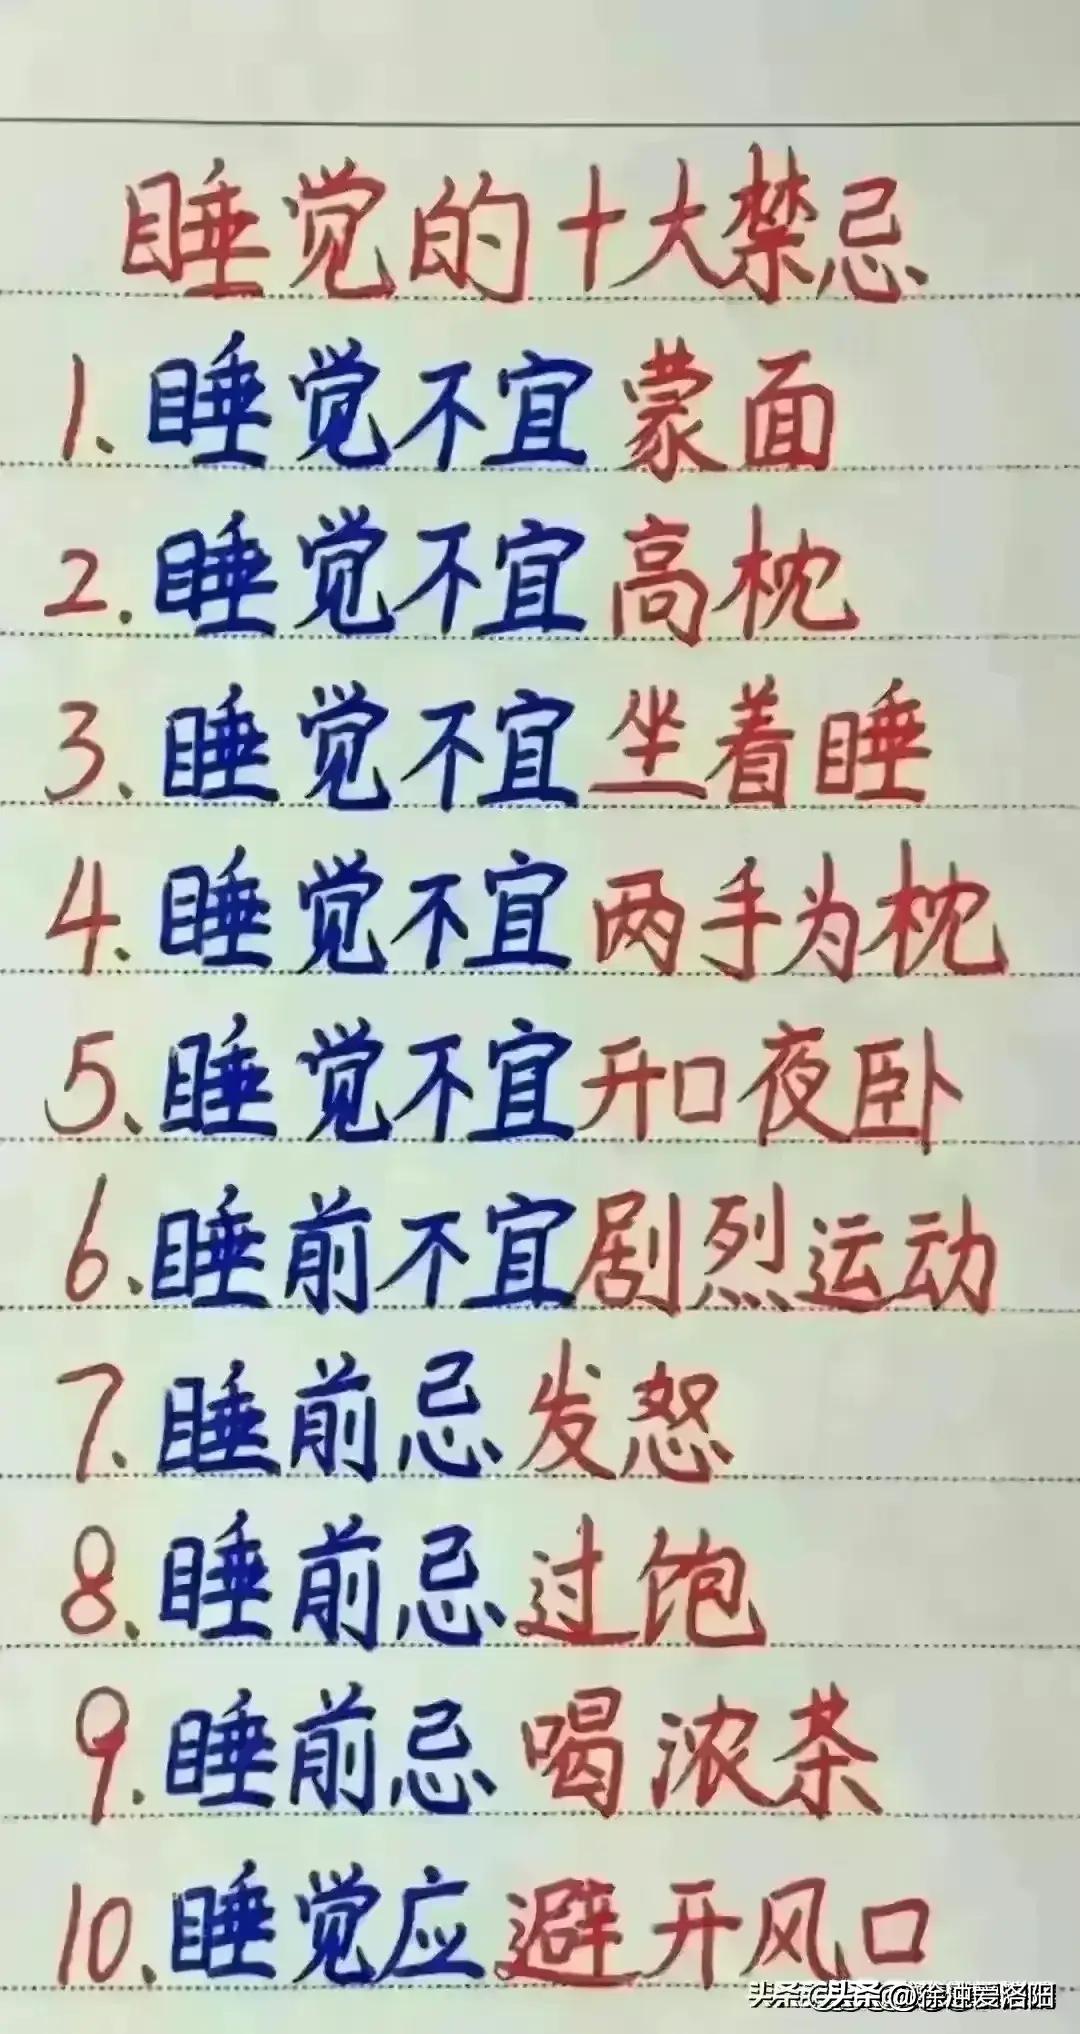 睡觉的十大禁忌
1、睡觉不宜蒙面
2.睡觉不宜高枕
3、睡觉不宜坐着睡
4、睡觉不宜两手为枕
5、睡觉不宜开口夜卧
6、睡前不宜剧烈运动
7、睡前忌发怒
8、睡前忌过饱
9、睡前忌喝浓茶
10、睡觉应避开风口